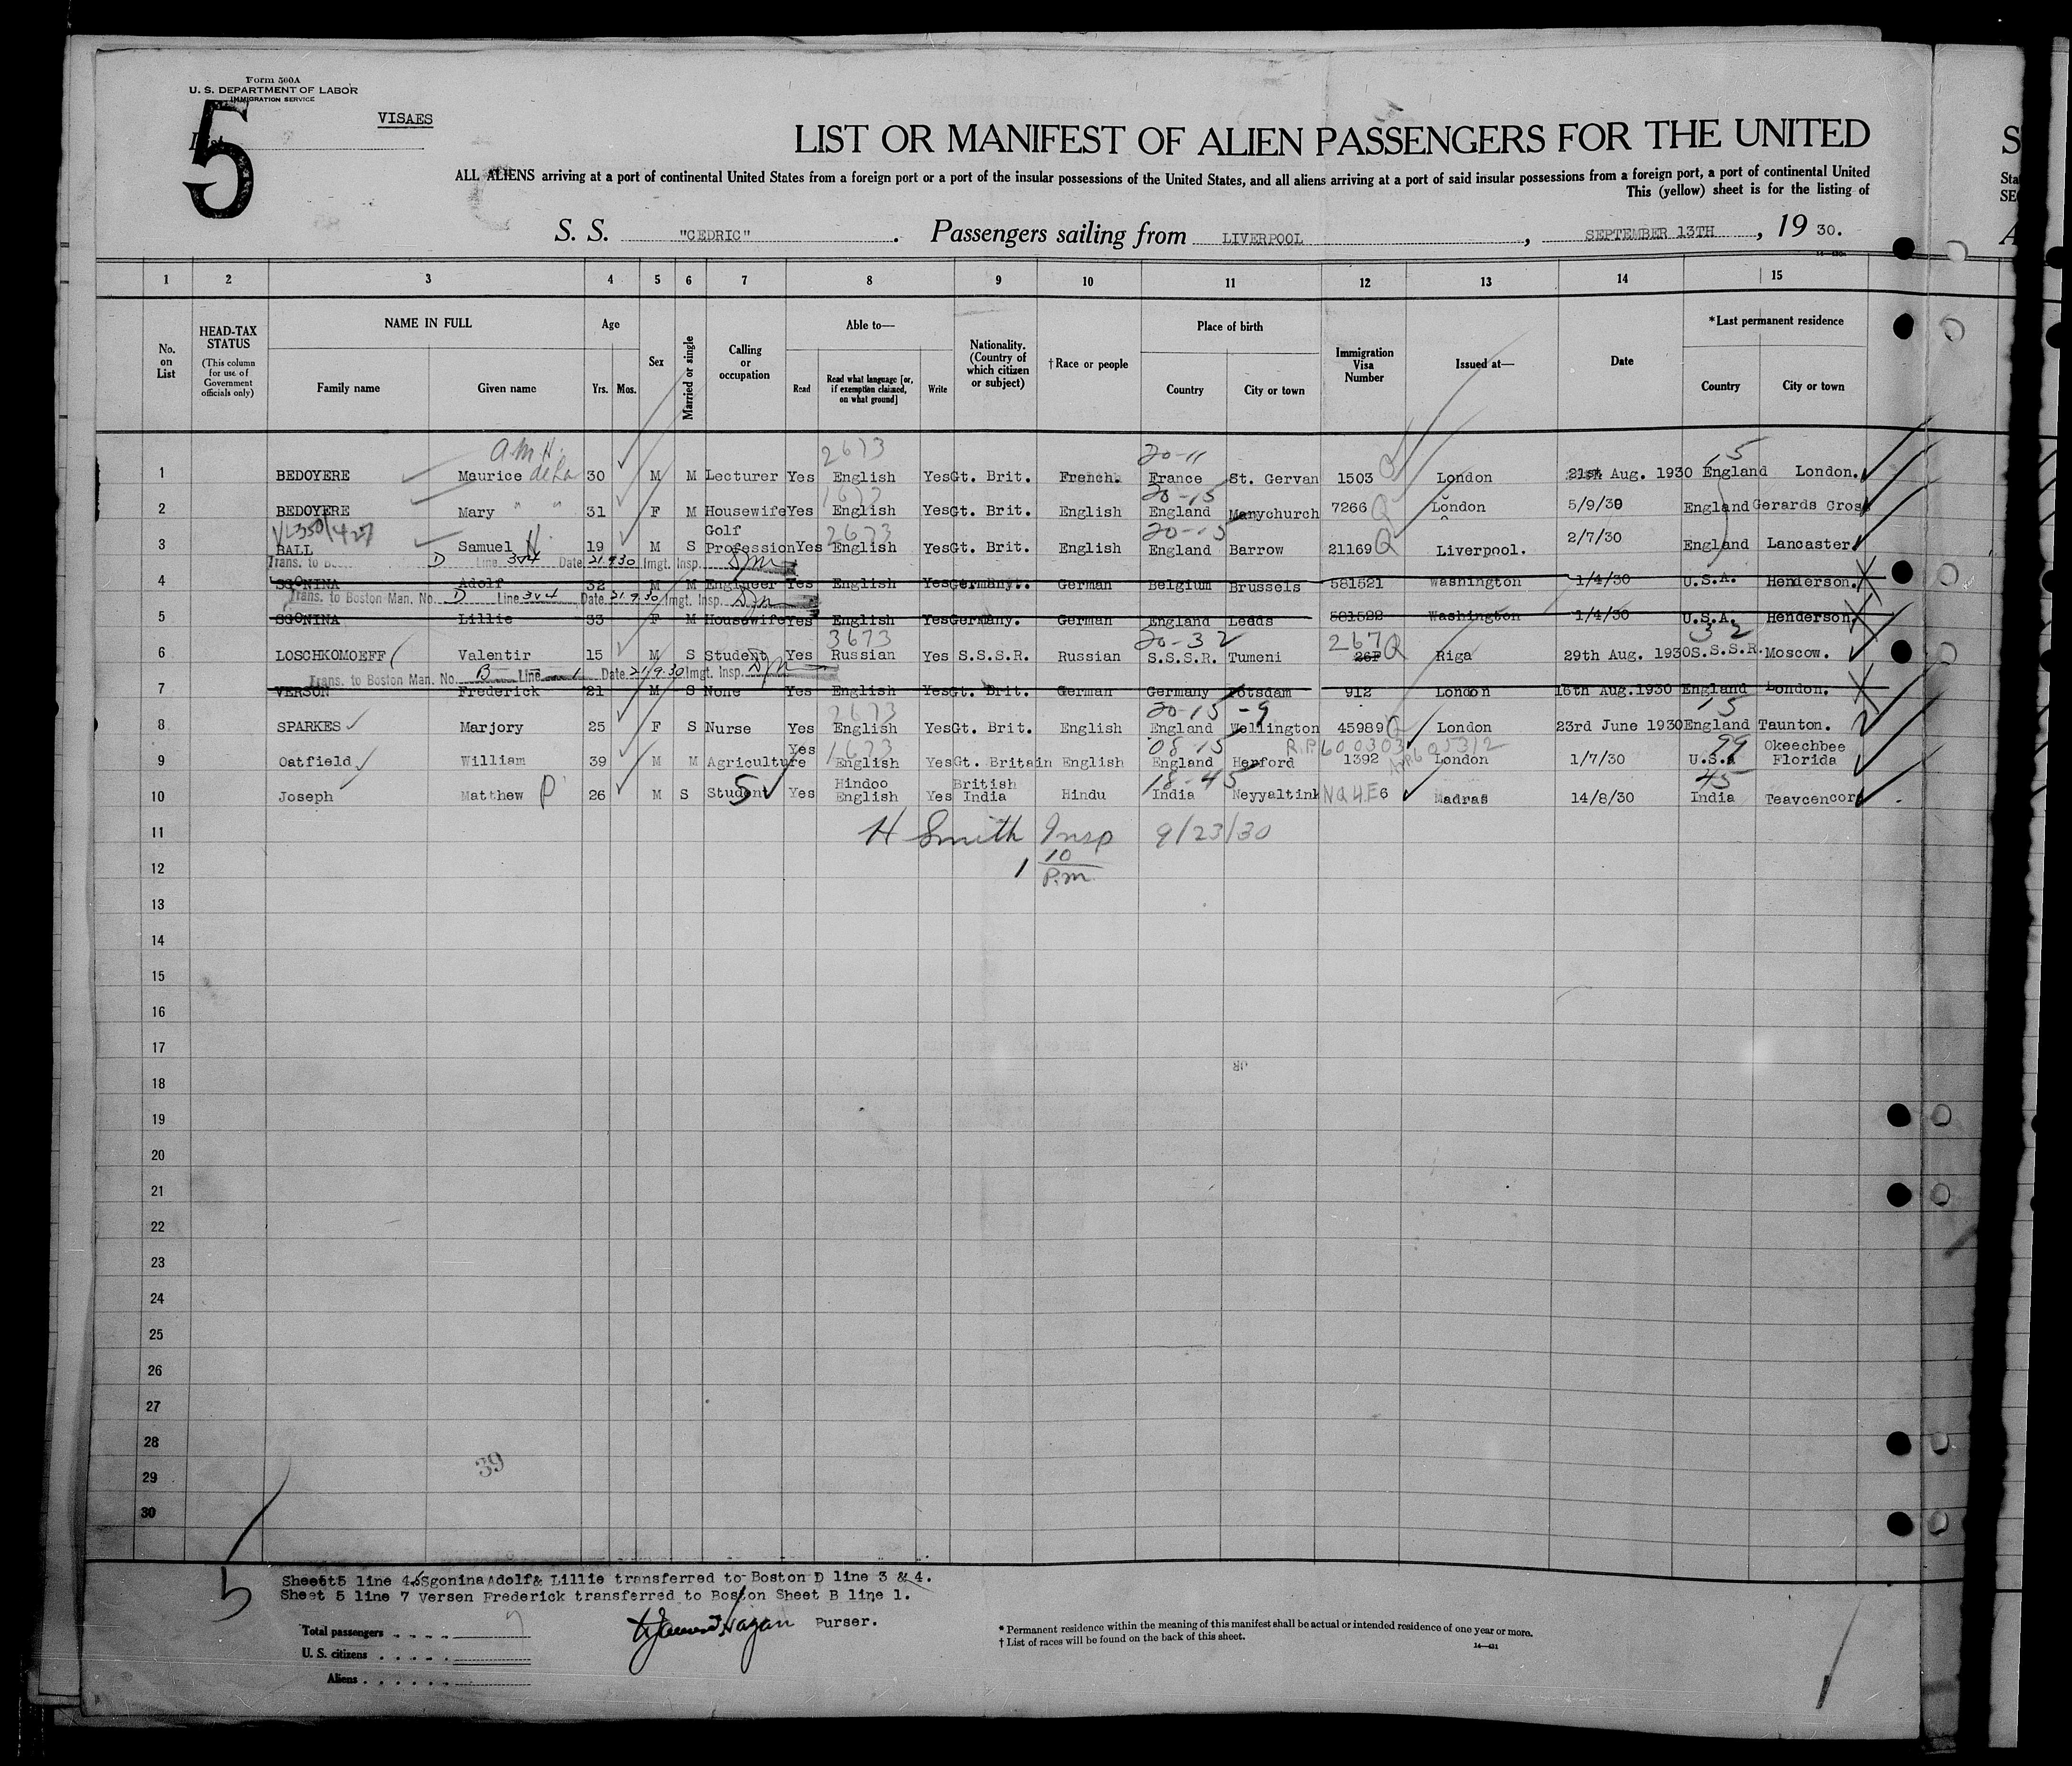 Form 500A
U. S. DEPARTMENT OF LABOR
IMMIGRATION SERVICE
VISAES
List
5
LIST OR MANIFEST OF ALIEN PASSENGERS FOR THE UNITED
ALL ALIENS arriving at a port of continental United States from a foreign port or a port of the insular possessions of the United States, and all aliens arriving at a port of said insular possessions from a foreign port, a port of continental United
This (yellow) sheet is for the listing of
S. S. "CEDRIC". Passengers sailing from LIVERPOOL, SEPTEMBER 13TH, 19 30.
1 2 3 4 5 6 7 8 9 10 11 12 13 14 15
No. on List
HEAD-TAX STATUS (This column for use of Government officials only)
NAME IN FULL
Family name Given name
Age
Yrs. Mos.
Sex
Married or single
Calling or occupation
Able to—
Read Read what language [or, if exemption claimed, on what ground] Write
Nationality. (Country of which citizen or subject)
†Race or people
Place of birth
Country City or town
Immigration Visa Number
Issued at—
Date
*Last permanent residence
Country City or town
A.M.H. 2673 20-11 15
1 BEDOYERE Maurice de la 30 M M Lecturer Yes English Yes Gt. Brit. French. France St. Gervan 1503 London 21st Aug. 1930 England London.
1673 20-15
2 BEDOYERE Mary " " 31 F M Housewife Yes English Yes Gt. Brit. English England Manychurch 7266 Q London 5/9/30 England Gerards Cross
2673 20-15
3 BALL Samuel H. 19 M S Golf Profession Yes English Yes Gt. Brit. English England Barrow 21169 Q Liverpool. 2/7/30 England Lancaster
Trans. to B D Line 3v4 Date 21.9.30 Imgt. Insp.
4 SGONINA Adolf 32 M M Engineer Yes English Yes Germany. German Belgium Brussels 581521 Washington 1/4/30 U.S.A. Henderson.
Trans. to Boston Man. No. D Line 3v4 Date 21.9.30 Imgt. Insp.
5 SGONINA Lillie 33 F M Housewife Yes English Yes Germany. German England Leeds 581522 Washington 1/4/30 U.S.A. Henderson.
3673 20-32 267 Q 32
6 LOSCHKOMOEFF Valentir 15 M S Student Yes Russian Yes S.S.S.R. Russian S.S.S.R. Tumeni 26F Riga 29th Aug. 1930 S.S.S.R. Moscow.
Trans. to Boston Man. No. B Line 1 Date 21/9.30 Imgt. Insp.
7 VERSON Frederick 21 M S None Yes English Yes Gt. Brit. German Germany Potsdam 912 London 16th Aug.1930 England London.
2673 20-15 -9 15
8 SPARKES Marjory 25 F S Nurse Yes English Yes Gt. Brit. English England Wellington 45989 Q London 23rd June 1930 England Taunton.
1673 08-15 R.P. 600303 99
9 Oatfield William 39 M M Agriculture Yes English Yes Gt. Britain English England Herford 1392 London 1/7/30 U.S.A Okeechbee Florida
18-45 45
10 Joseph Matthew P 26 M S Student 5 Yes Hindoo English Yes British India Hindu India Neyyaltink N Q 4.E6 Madras 14/8/30 India Teavcencore
11 H Smith Insp 9/23/30
12 1 10 P.m
13
14
15
16
17
18
19
20
21
22
23
24
25
26
27
28
29
30
39
5
Sheet5 line 4.5 Sgonina Adolf& Lillie transferred to Boston D line 3 & 4.
Sheet 5 line 7 Versen Frederick transferred to Boston Sheet B line 1.
Hagan Purser.
Total passengers 7
U. S. citizens
Aliens
* Permanent residence within the meaning of this manifest shall be actual or intended residence of one year or more.
† List of races will be found on the back of this sheet.
14—421